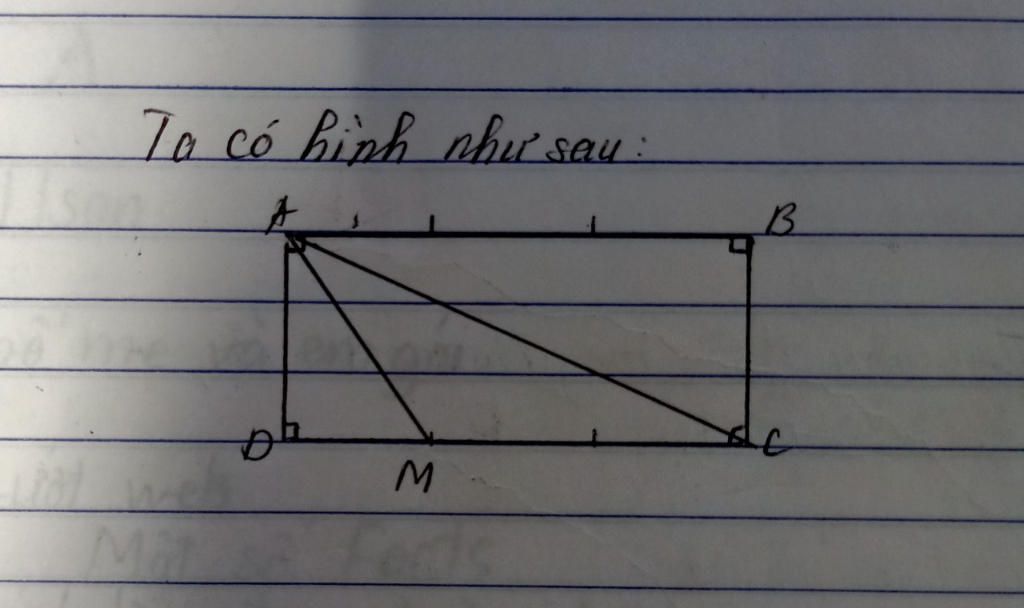 Ta có hình như sau:
A B
D M C